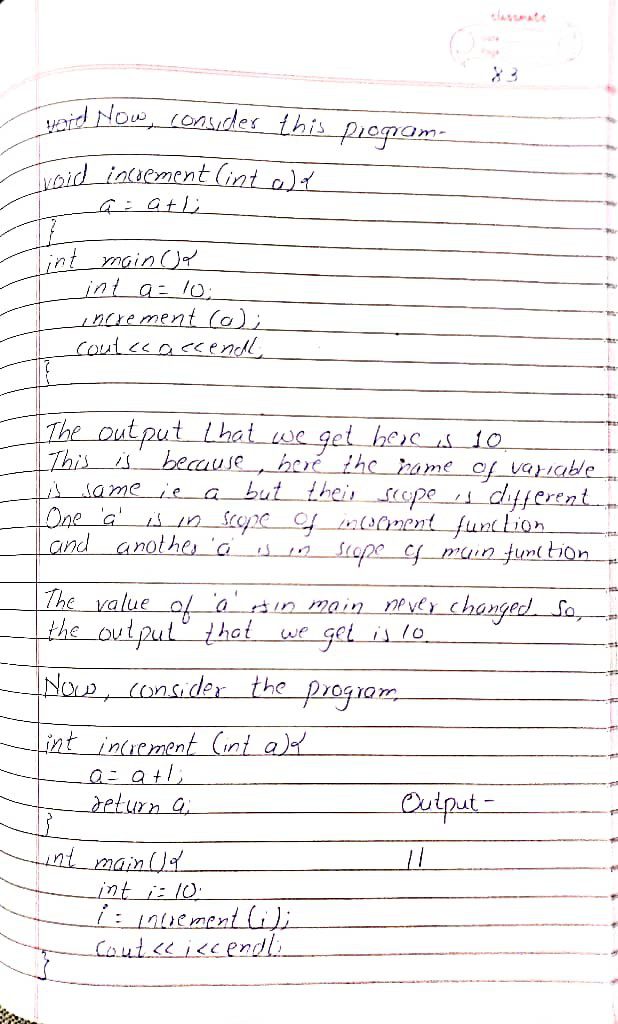 classmate
Date
Page
83
void Now, consider this program-
void increment (int a){
a = a+1;
}
int main(){
int a = 10;
increment (a);
cout << a << endl;
}
The output that we get here is 10.
This is because, here the name of variable
is same ie a but their scope is different
One 'a' is in scope of increment function
and another 'a' is in scope of main function
The value of 'a' in main never changed. So,
the output that we get is 10.
Now, consider the program,
int increment (int a){
a = a+1;
return a;
Output-
}
int main(){
11
int i = 10;
i = increment (i);
cout << i << endl;
}